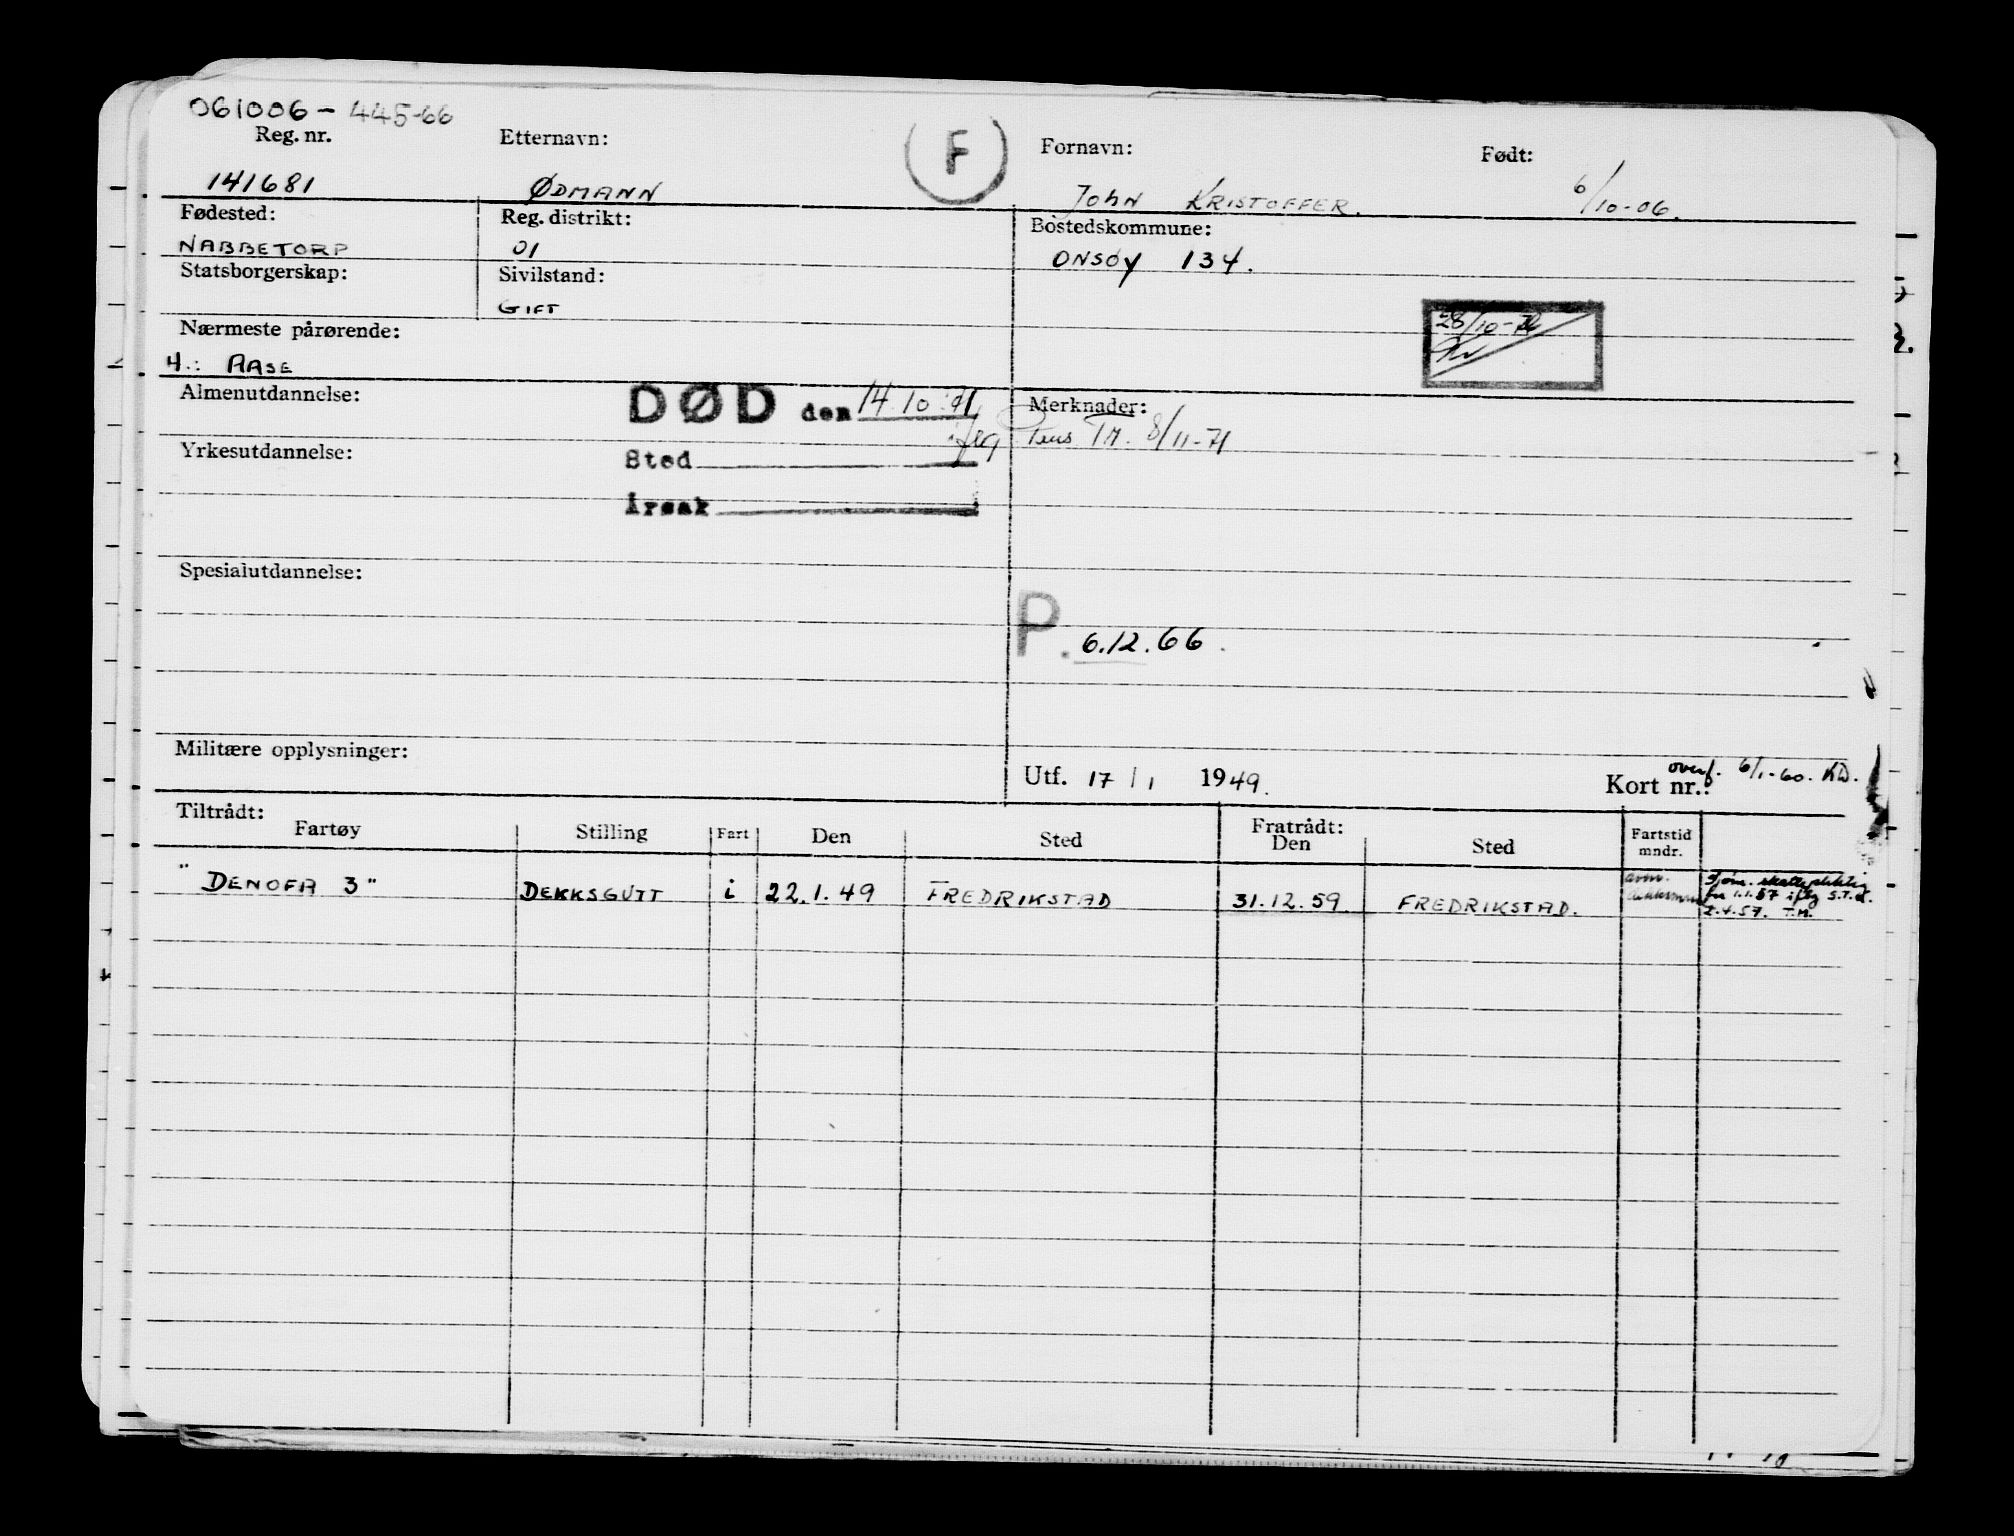 061006-445-66
Reg. nr. Etternavn: F Fornavn: Født:
141681 ØDMANN JOHN KRISTOFFER. 6/10-06.
Fødested: Reg. distrikt: Bostedskommune:
NABBETORP 01 ONSØY 134.
Statsborgerskap: Sivilstand:
GIFT
28/10-
Nærmeste pårørende:
H.: AASE
Almenutdannelse: DØD den 14.10.71 Merknader:
iflg Pens TM. 8/11-71
Yrkesutdannelse: Sted
Årsak
Spesialutdannelse:
P. 6.12.66.
Militære opplysninger:
Utf. 17/1 1949. Kort nr.: overf. 6/1-60. KD.
Tiltrådt: Fratrådt:
Fartøy Stilling Fart Den Sted Den Sted Fartstid mndr.
"DENOFA 3" DEKKSGUTT i 22.1.49 FREDRIKSTAD 31.12.59 FREDRIKSTAD.
avm. Tjen. skattepliktig
dekksmann fra 1.1.57 iflg S.T.d.
2.4.57. T.M.